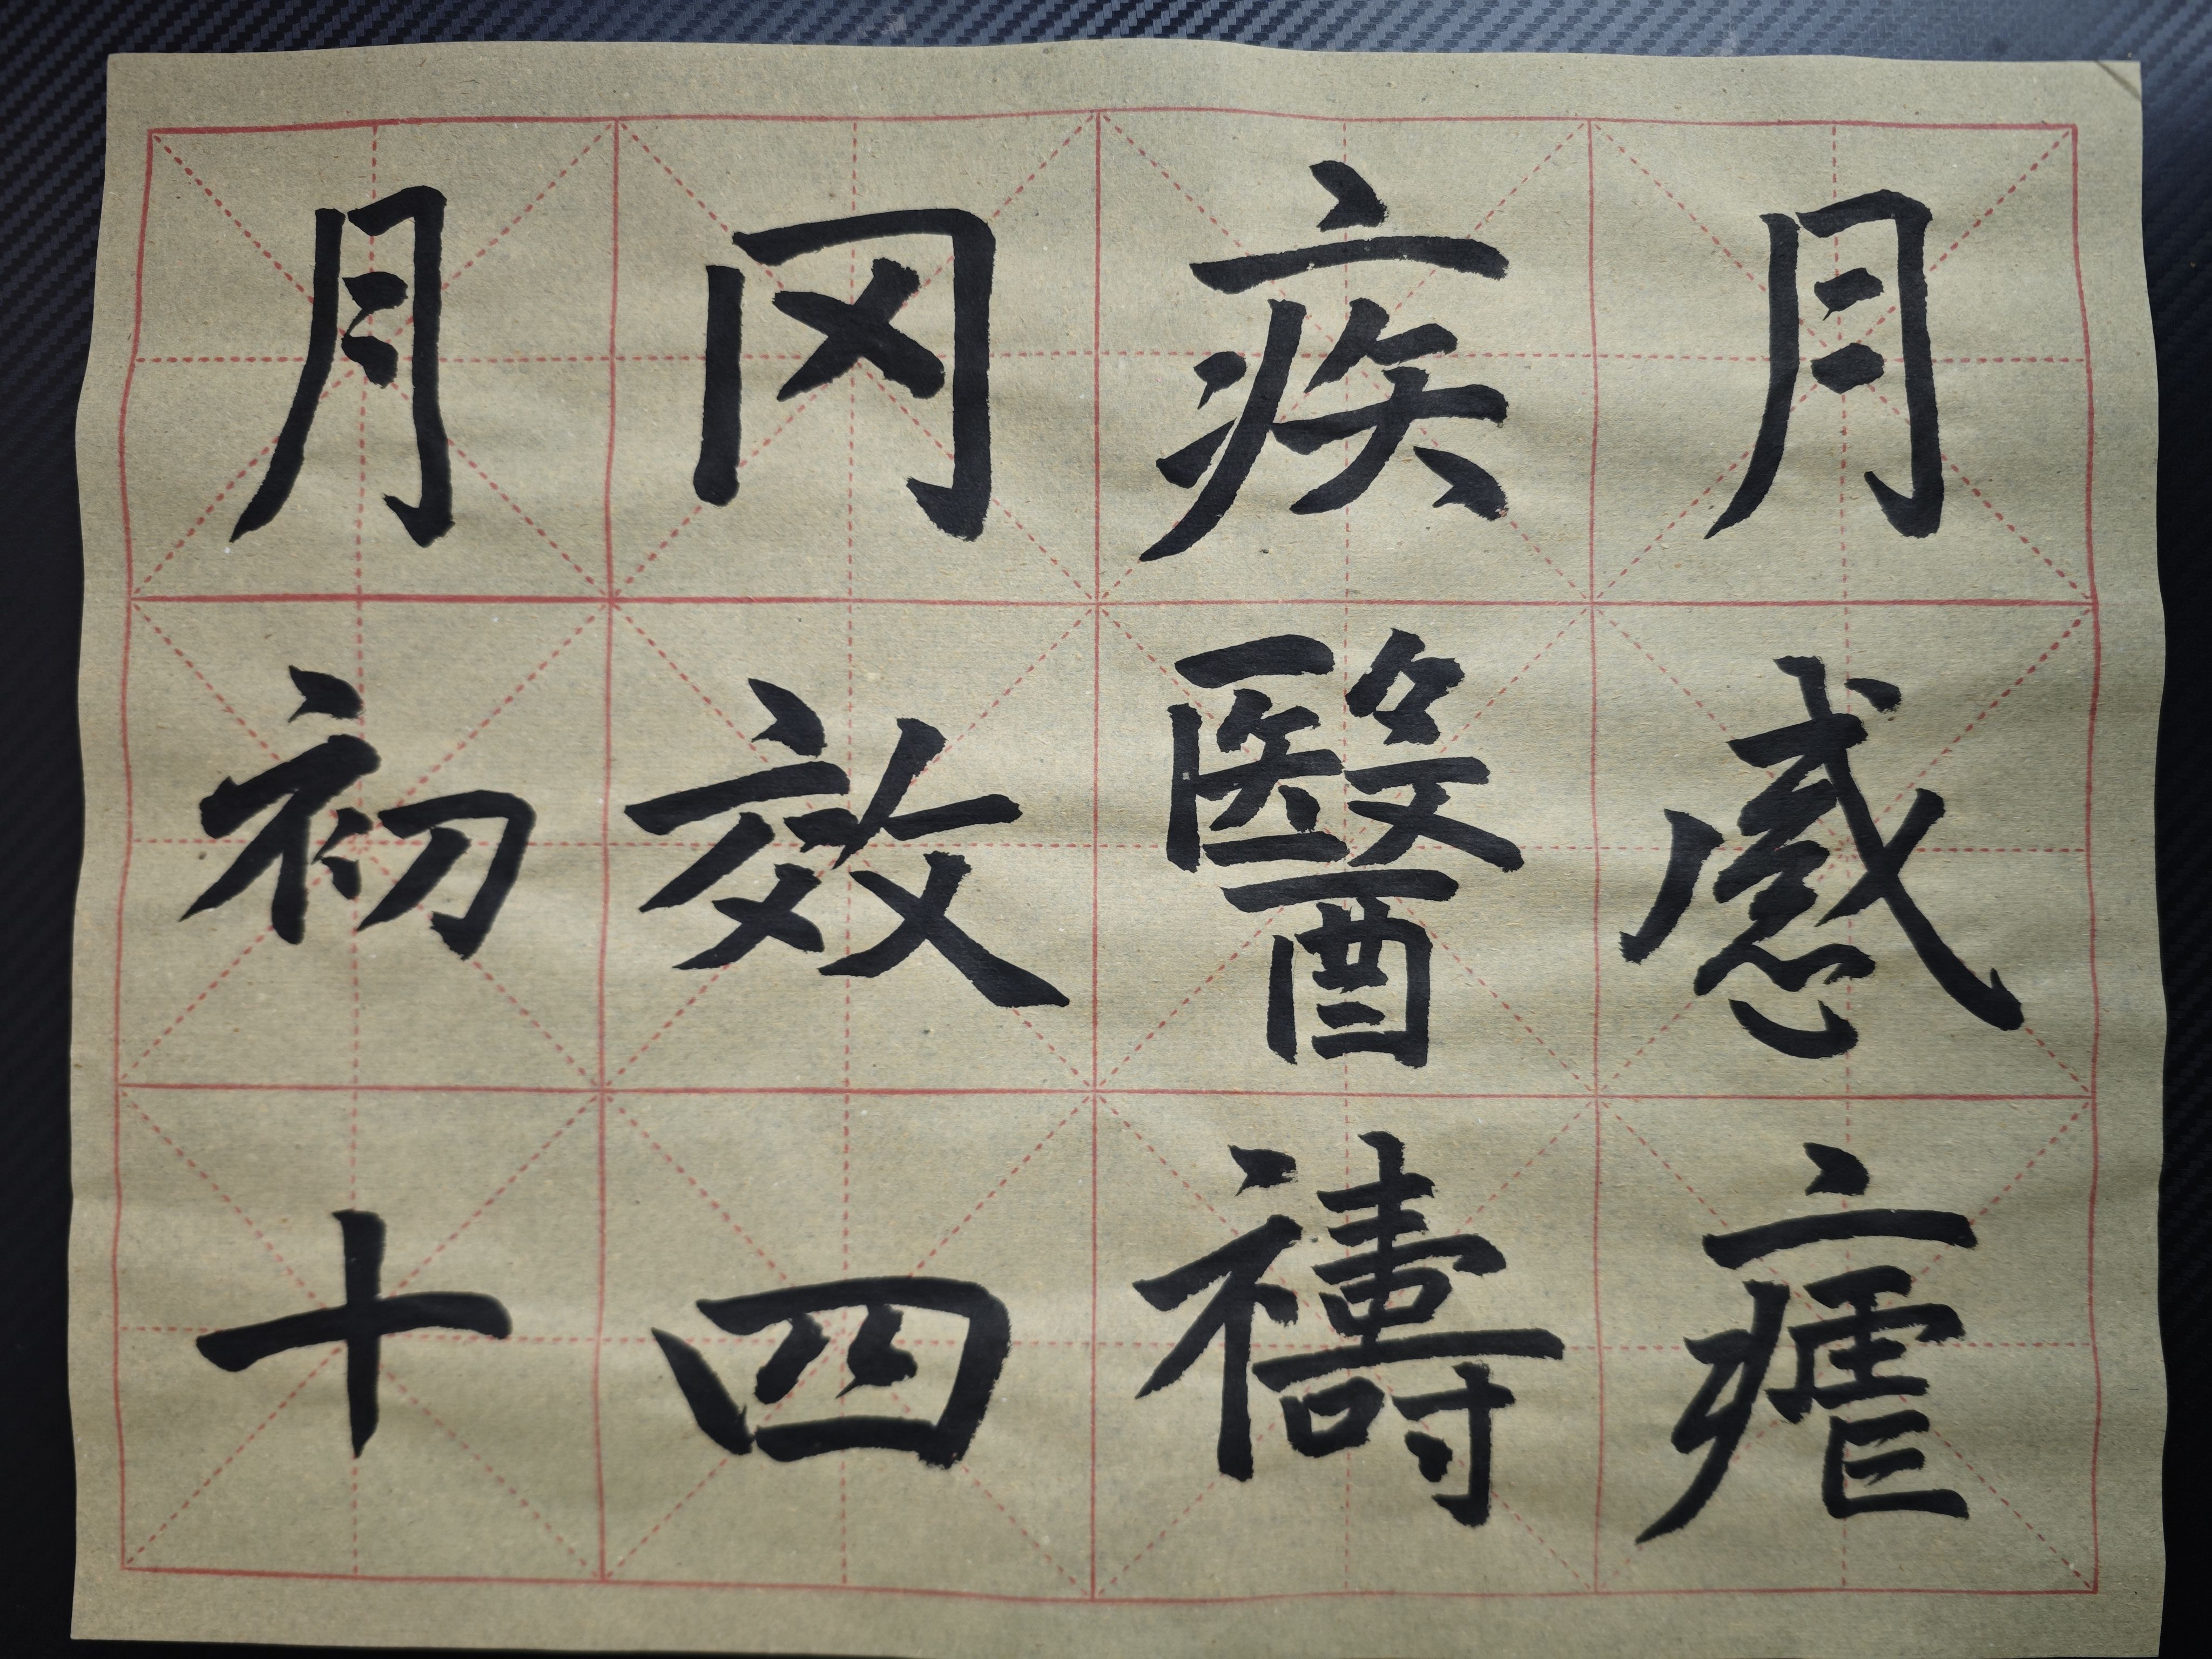 月感瘧
疾醫禱
罔效四
月初十